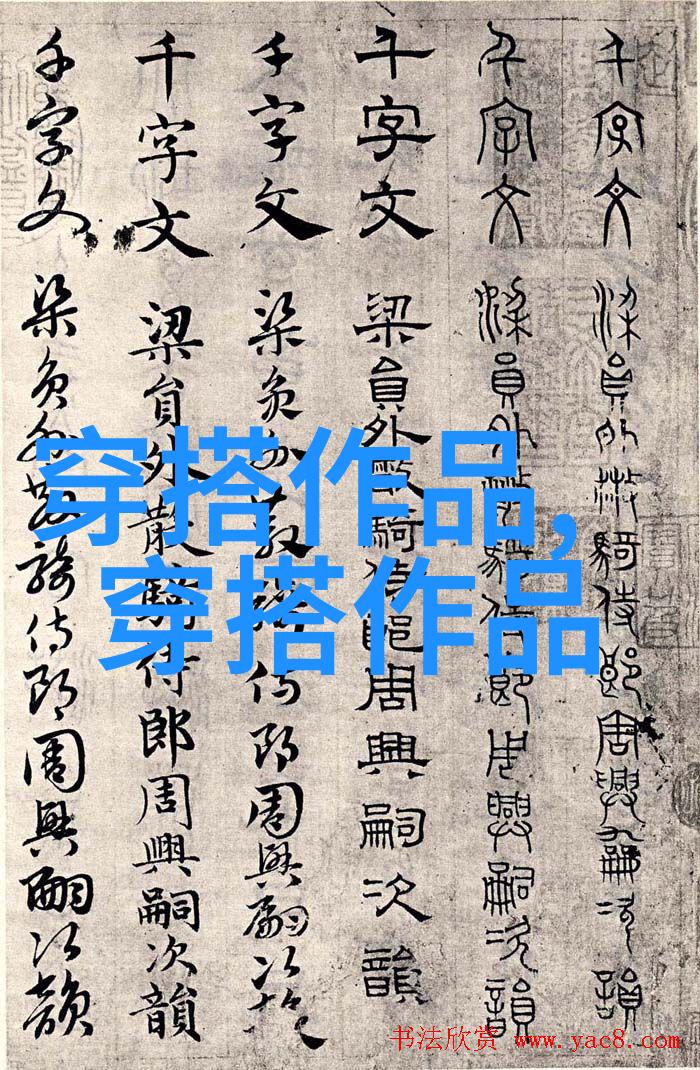 千字文 梁員外散騎侍郎周興嗣次韻
千字文 梁員外散騎侍郎周興嗣次韻
千字文 梁員外散騎侍郎周興嗣次韻
千字文 梁員外散騎侍郎周興嗣次韻
千字文 梁員外散騎侍郎周興嗣次韻
千字文 梁員外散騎侍郎周興嗣次韻
穿搭作品,
穿搭作品
书法欣赏 www.yac8.com